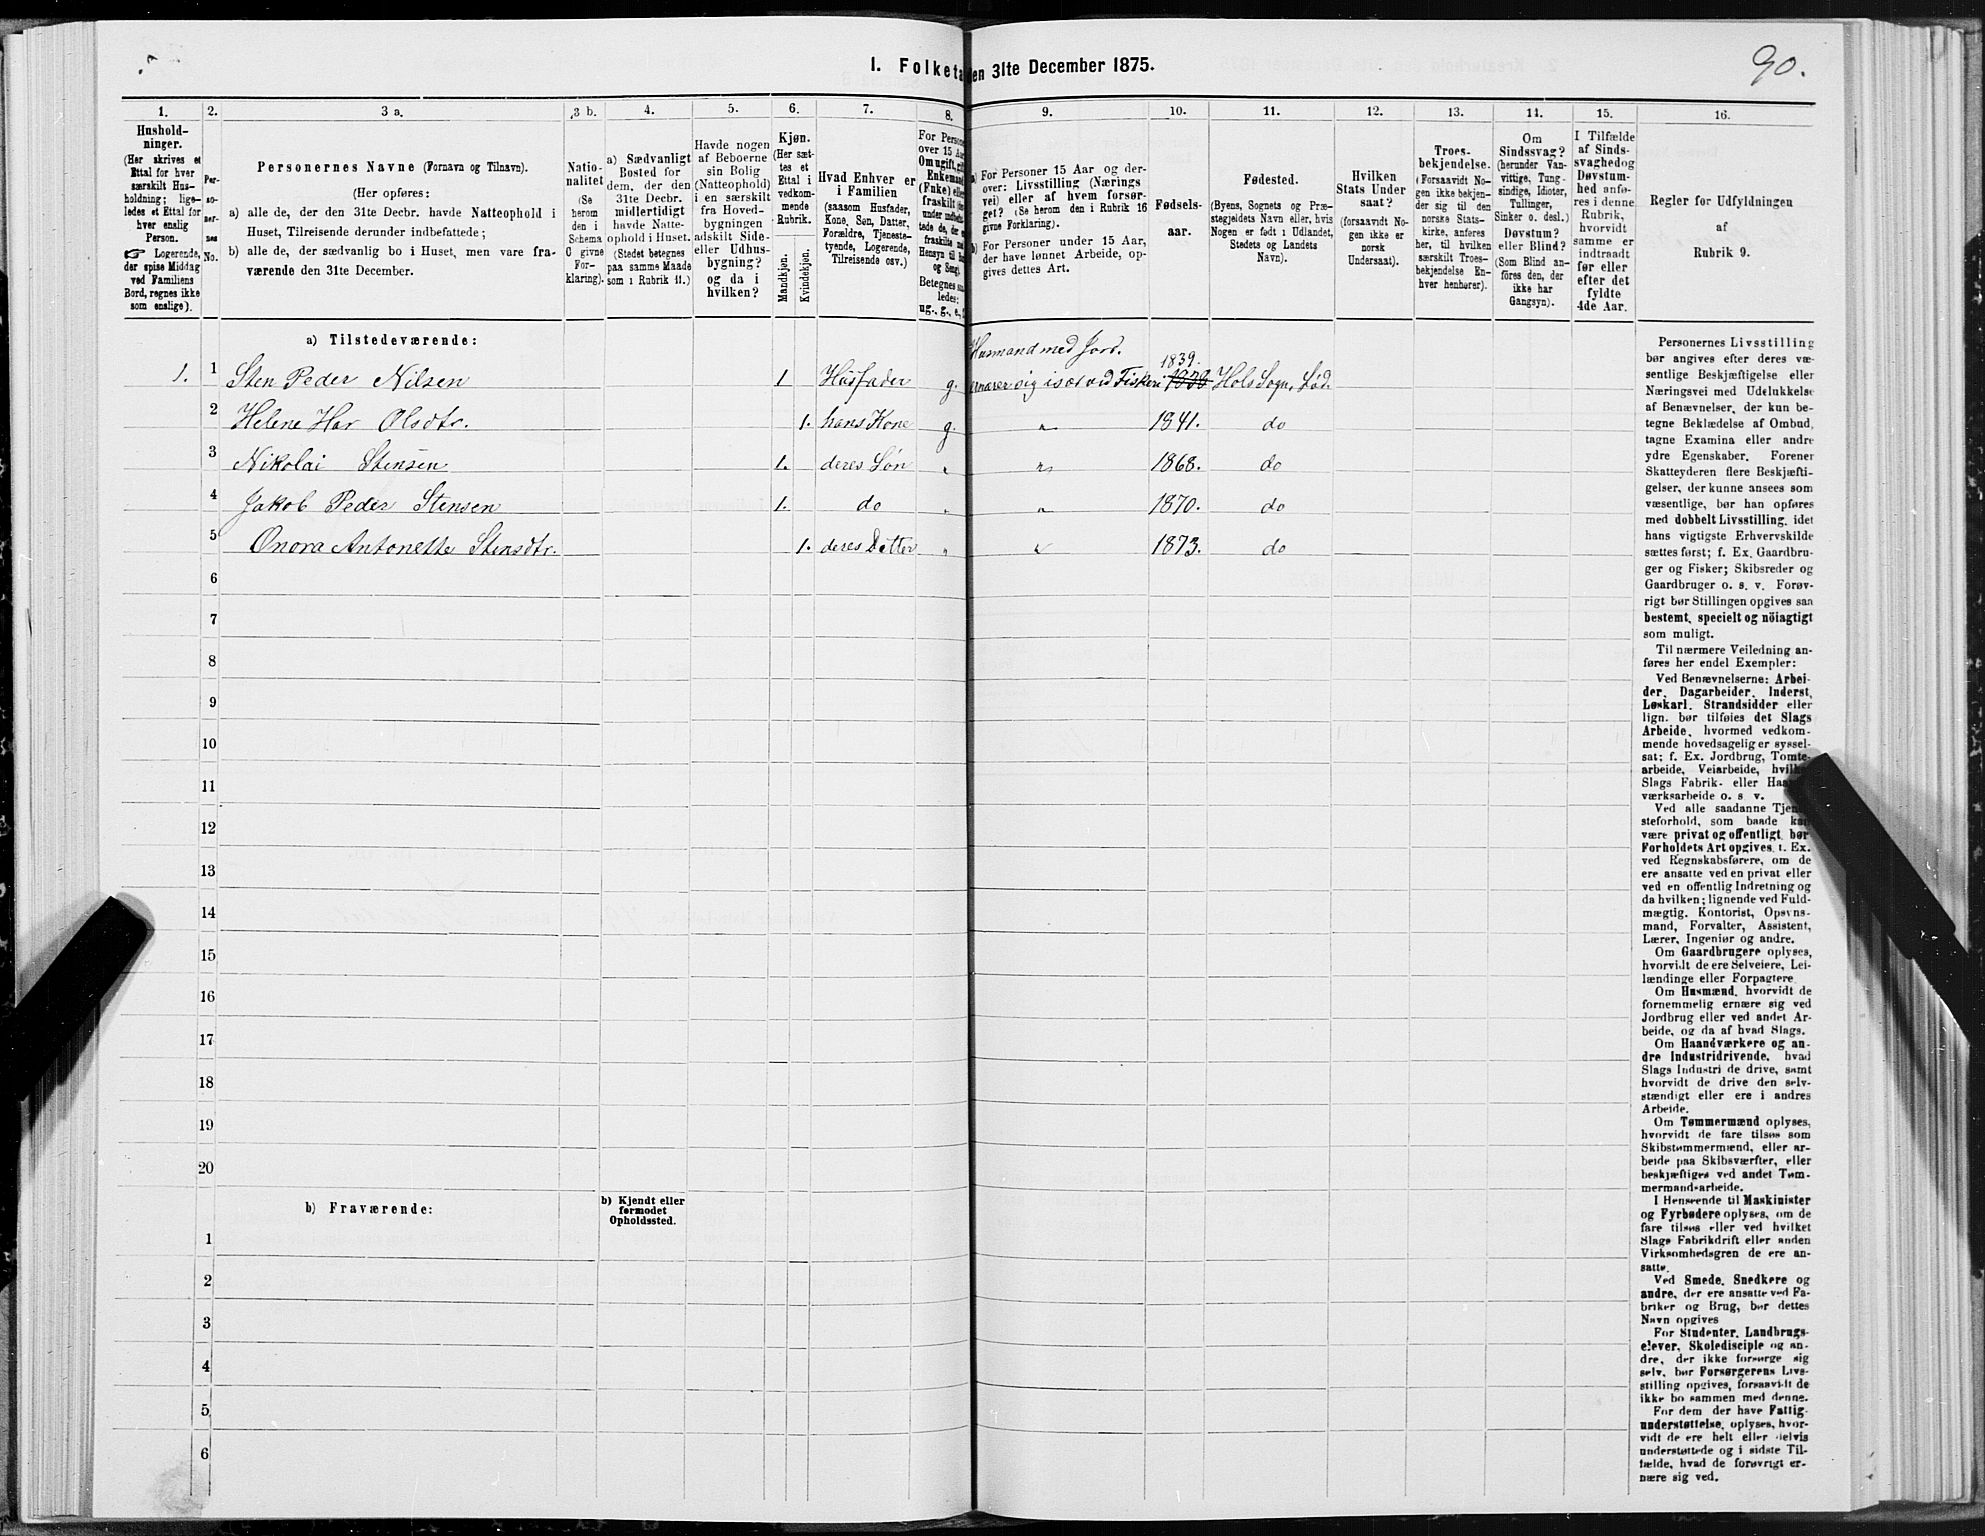 90.
I. Folketa en 31te December 1875.
1. 2. 3 a. 3 b. 4. 5. 6. 7. 8. 9. 10. 11. 12. 13. 14. 15. 16.
Hushold-
ninger.
(Her skrives et
Ettal for hver
særskilt Hus-
holdning; lige-
ledes et Ettal for
hver enslig
Person.
☞ Logerende,
der spise Middag
ved Familiens
Bord, regnes ikke
som enslige).
Per-
so-
ner-
nes
No.
Personernes Navne (Fornavn og Tilnavn).
(Her opføres:
a) alle de, der den 31te Decbr. havde Natteophold i
Huset, Tilreisende derunder indbefattede;
b) alle de, der sædvanlig bo i Huset, men vare fra-
værende den 31te December.
Natio-
nalitet
(Se
herom
den i
Schema
O givne
For-
klaring).
a) Sædvanligt
Bosted for
dem, der den
31te Decbr.
midlertidigt
havde Natte-
ophold i Huset.
(Stedet betegnes
paa samme Maade
som i Rubrik 11.)
Havde nogen
af Beboerne
sin Bolig
(Natteophold)
i en særskilt
fra Hoved-
bygningen
adskilt Side-
eller Udhus-
bygning?
og da i
hvilken?
Kjøn.
(Her sæt-
tes et
Ettal i
vedkom-
mende
Rubrik.
Mandkjøn.
Kvindekjøn.
Hvad Enhver er
i Familien
(saasom Husfader,
Kone, Søn, Datter,
Forældre, Tjeneste-
tyende, Logerende,
Tilreisende osv.)
For Person
over 15 Aar
Om ugift, gift
Enkemand
(Fuke) elle
fraskilt
under
tede de,
fraskilte
Hensyn til
og Seng.
Betegnes
ledes:
ug., g., e.,
a) For Personer 15 Aar og der-
over: Livsstilling (Nærings
vei) eller af hvem forsør-
get? (Se herom den i Rubrik 16
givne Forklaring).
b) For Personer under 15 Aar,
der have lønnet Arbeide, op-
gives dettes Art.
Fødsels-
aar.
Fødested.
(Byens, Sognets og Præ-
stegjeldets Navn eller, hvis
Nogen er født i Udlandet,
Stedets og Landets
Navn).
Hvilken
Stats Under
saat?
(forsaavidt No-
gen ikke er
norsk
Undersaat).
Troes-
bekjendelse.
(Forsaavidt No-
gen ikke bekjen-
der sig til den
norske Stats-
kirke, anføres
her, til hvilken
særskilt Troes-
bekjendelse En-
hver henhører).
Om
Sindssvag?
(herunder Van-
vittige, Tung-
sindige, Idioter,
Tullinger,
Sinker o. desl.)
Døvstum?
eller Blind?
(Som Blind an-
føres den, der
ikke har
Gangsyn).
I Tilfælde
af Sinds-
svaghed og
Døvstum-
hed anfø-
res i denne
Rubrik,
hvorvidt
samme er
indtraadt
før eller
efter det
fyldte
4de Aar.
Regler for Udfyldningen
af
Rubrik 9.
a) Tilstedeværende:
Husmand med Jord.
1. 1 Sten Peder Nilsen 1 Husfader g. ernærer sig især ved Fiskeri 1839. 1838 Hols Sogn, Lød.
2 Helene Har Olsdtr. 1. hans Kone g. " 1841. do
3 Nikolai Stensen 1. deres Søn " " 1868. do
4 Jakob Peder Stensen 1. do " " 1870. do
5 Onora Antonette Stensdtr. 1. deres Datter " " 1873. do
6
7
8
9
10
11
12
13
14
15
16
17
18
19
20
b) Fraværende:
b) Kjendt eller
formodet
Opholdssted.
1
2
3
4
5
6
Personernes Livsstilling
bør angives efter deres væ-
sentlige Beskjæftigelse eller
Næringsvei med Udelukkelse
af Benævnelser, der kun be-
tegne Beklædelse af Ombud,
tagne Examina eller andre
ydre Egenskaber. Forener
Skatteyderen flere Beskjæfti-
gelser, der kunne ansees som
væsentlige, bør han opføres
med dobbelt Livsstilling, idet
hans vigtigste Erhvervskilde
sættes først; f. Ex. Gaardbru-
ger og Fisker; Skibsreder og
Gaardbruger o. s. v. Forøv-
rigt bør Stillingen opgives saa
bestemt, specielt og nöiagtigt
som muligt.
Til nærmere Veiledning an-
føres her endel Exempler:
Ved Benævnelserne: Arbei-
der, Dagarbeider, Inderst,
Løskarl, Strandsidder eller
lign. bør tilføies det Slags
Arbeide, hvormed vedkom-
mende hovedsagelig er syssel-
sat; f. Ex. Jordbrug, Tomte-
arbeide, Veiarbeide, hvil
Slags Fabrik- eller Haa
værksarbeide o. s. v.
Ved alle saadanne Tjen
steforhold, som baade kan
være privat og offentligt, bør
Forholdets Art opgives, t. Ex.
ved Regnskabsførere, om de
ere ansatte ved en privat eller
ved en offentlig Indretning og
da hvilken; lignende ved Fuld-
mægtig, Kontorist, Opsyns-
mand, Forvalter, Assistent,
Lærer, Ingeniør og andre.
Om Gaardbrugere oplyses,
hvorvidt de ere Selveiere, Lei-
lændinge eller Forpagtere.
Om Husmænd, hvorvidt de
fornemmelig ernære sig ved
Jordbrug eller ved andet Ar-
beide, og da af hvad Slags.
Om Haandværkere og an-
dre Industridrivende, hvad
Slags Industri de drive, samt
hvorvidt de drive den selv-
stændigt eller ere i andres
Arbeide.
Om Tømmermænd oplyses,
hvorvidt de fare tilsøs som
Skibstømmermænd, eller ar-
beide paa Skibsværfter, eller
beskjæftiges ved andet Tøm-
mermandsarbeide.
I Henseende til Maskinister
og Fyrbødere oplyses, om de
fare tilsøs eller ved hvilket
Slags Fabrikdrift eller anden
Virksomhedsgren de ere an-
satte.
Ved Smede, Snedkere og
andre, der ere ansatte ved Fa-
briker og Brug, bør dettes
Navn opgives
For Studenter, Landbrugs-
elever, Skoledisciple og an-
dre, der ikke forsørge sig
selv, bør Forsørgerens Livs-
stilling opgives, forsaavidt de
ikke bo sammen med denne.
For dem der have Fattig-
understøttelse, oplyses, hvor-
vidt de ere helt eller delvis
understøttede og i sidste Til-
fælde, hvad de forøvrigt er-
nære sig ved.